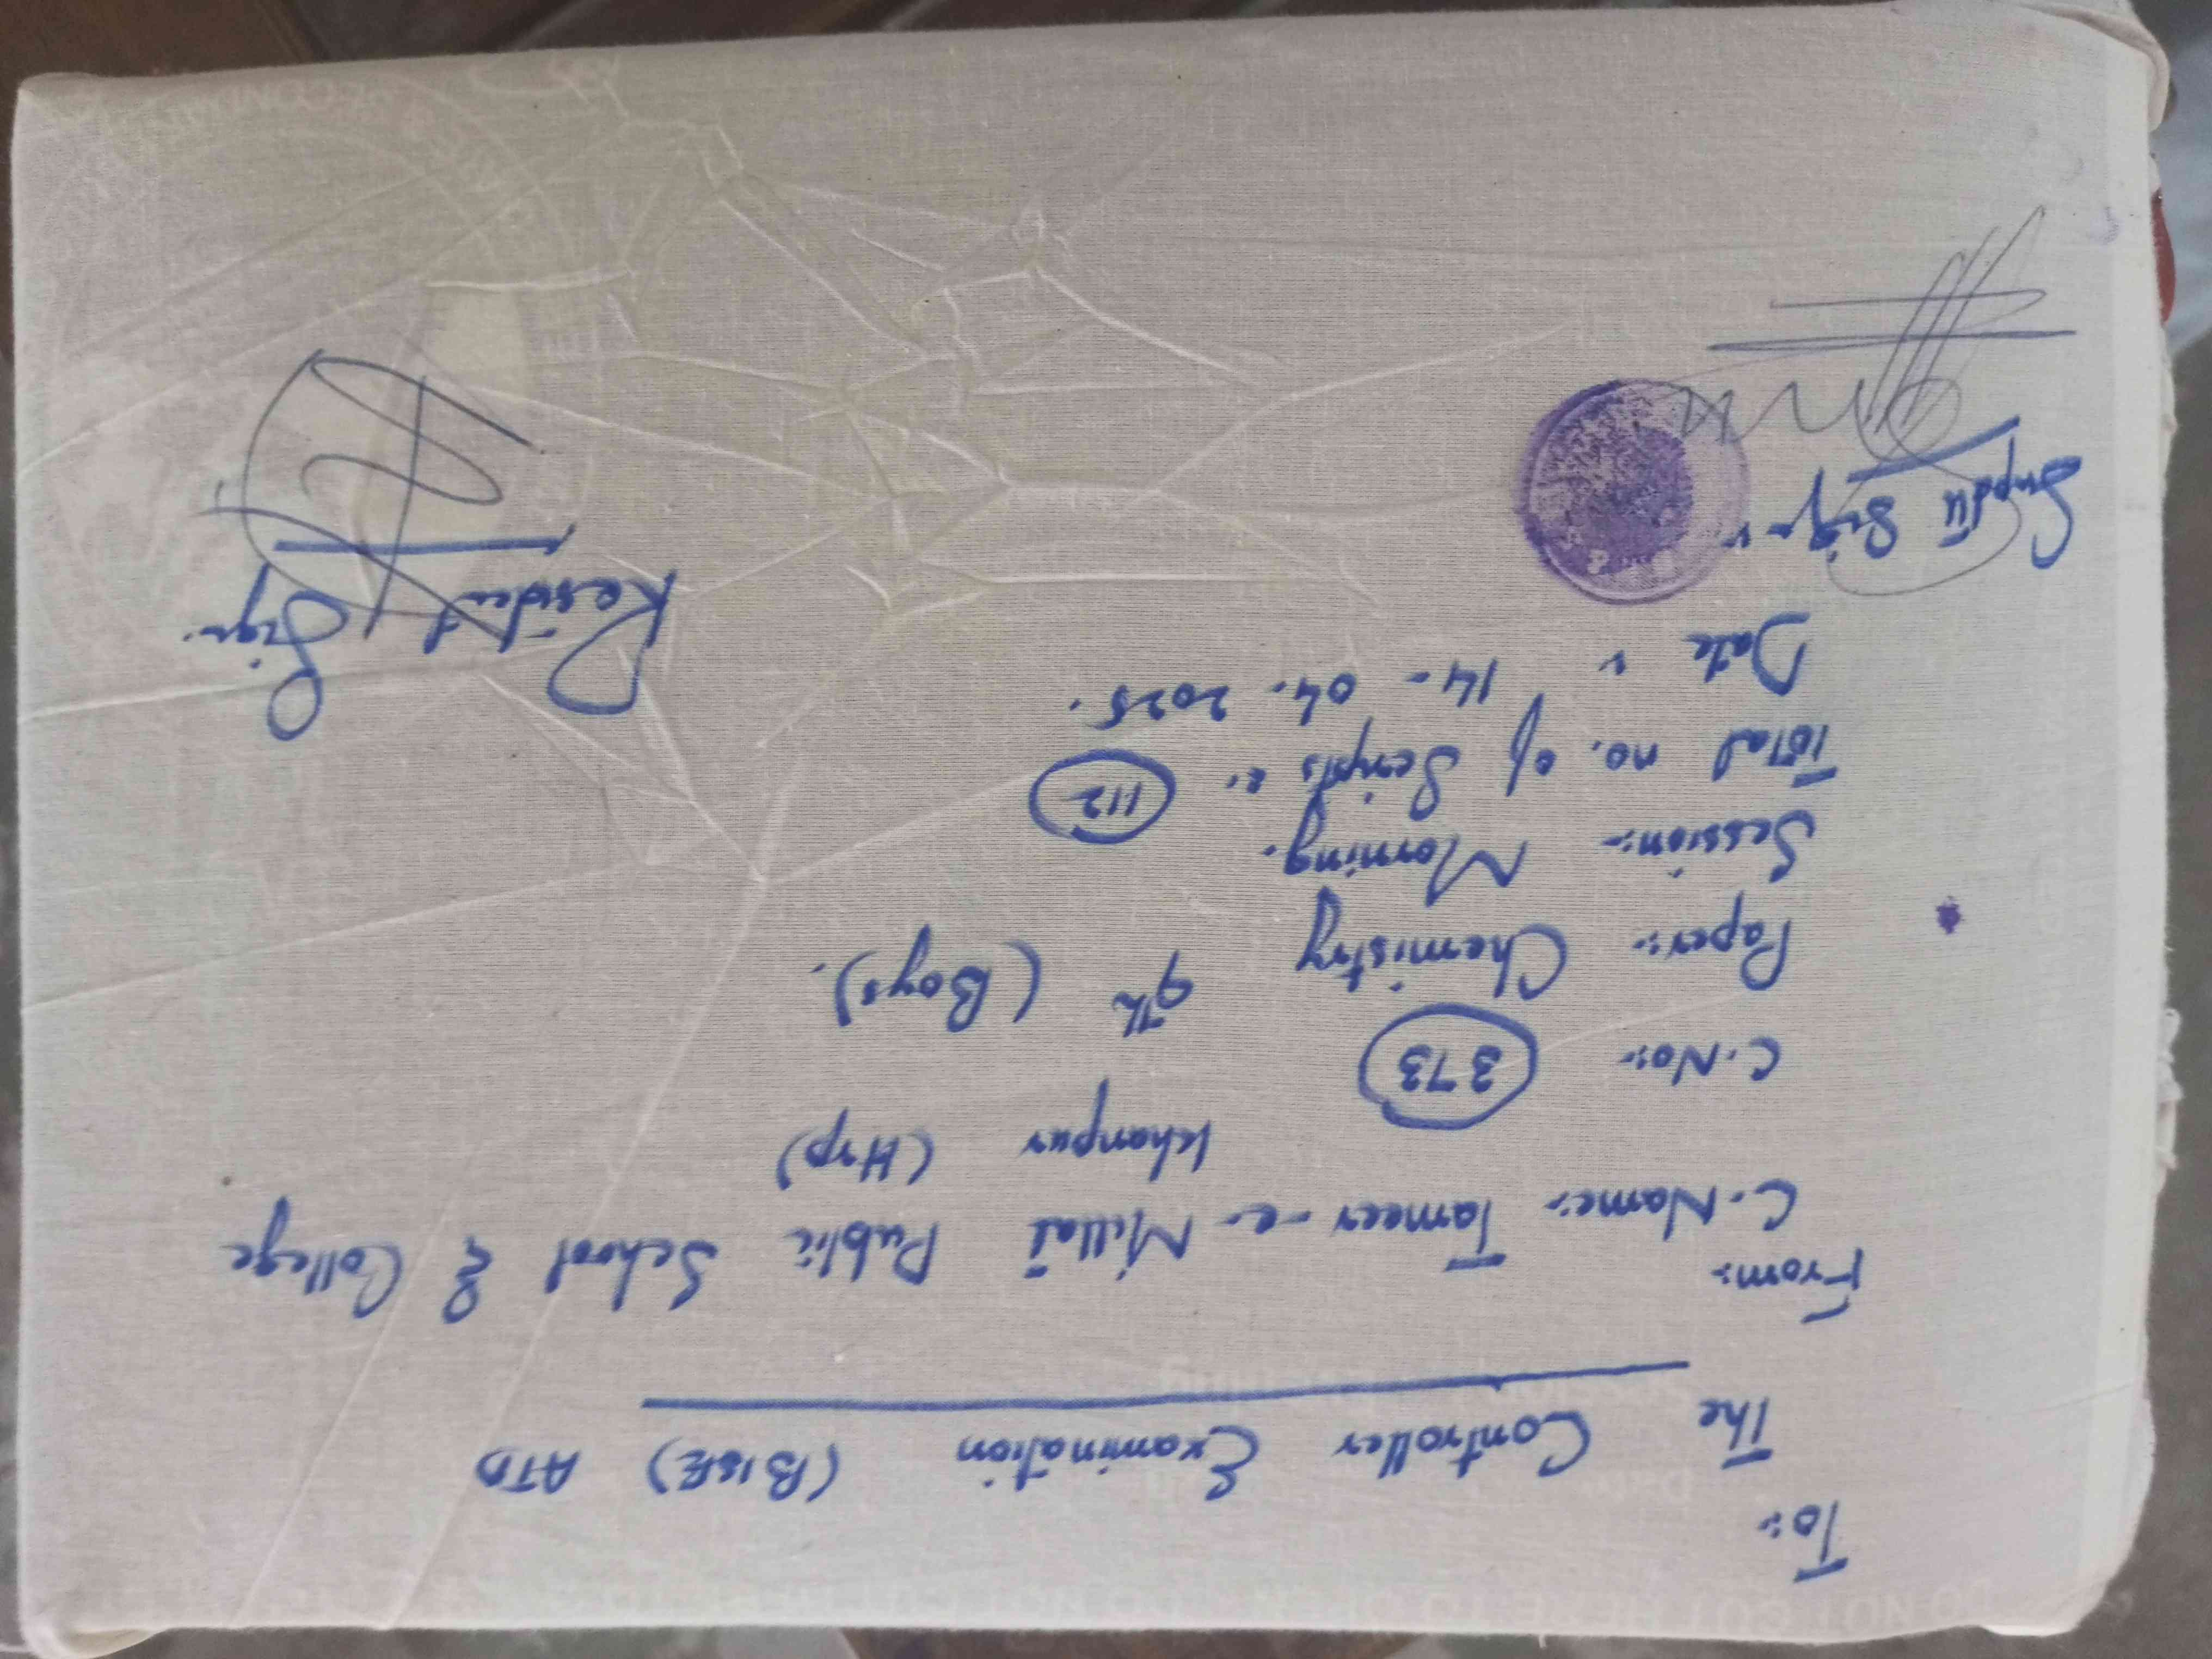 To:-
The Controller Examination (BISE) ATD
From:-
C. Name:- Tameer-e-Millat Public School & College
Khanpur (Hrp)
C. No:- 373
Paper:- Chemistry 9th (Boys).
Session:- Morning.
Total no. of Scripts :- 112
Date :- 14-04-2025.
Supdtt Sign:-
Resident Sign:
DO NOT CUT HERE TO OPEN